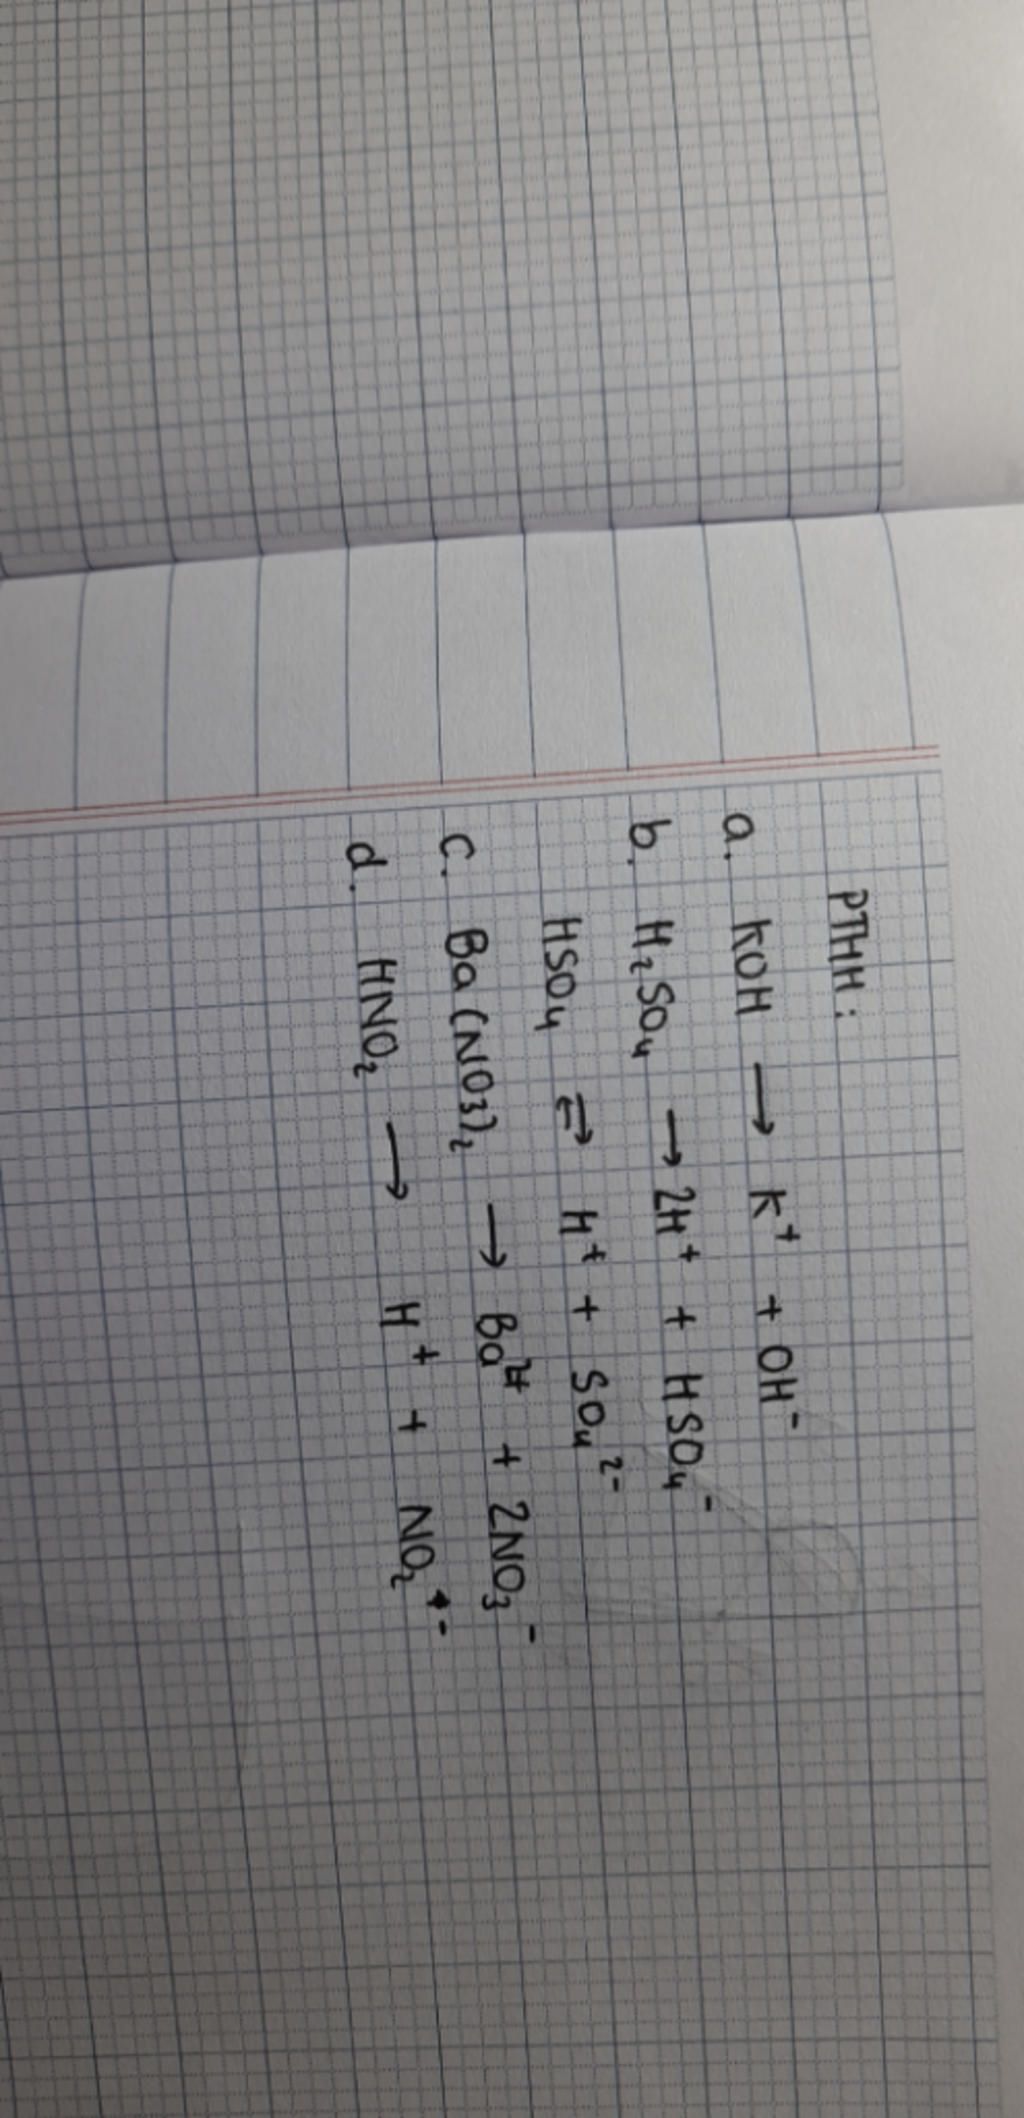 PTHH:
a. KOH → K⁺ + OH⁻
b. H₂SO₄ → 2H⁺ + HSO₄⁻
HSO₄ ⇌ H⁺ + SO₄²⁻
c. Ba(NO₃)₂ → Ba²⁺ + 2NO₃⁻
d. HNO₂ → H⁺ + NO₂⁻